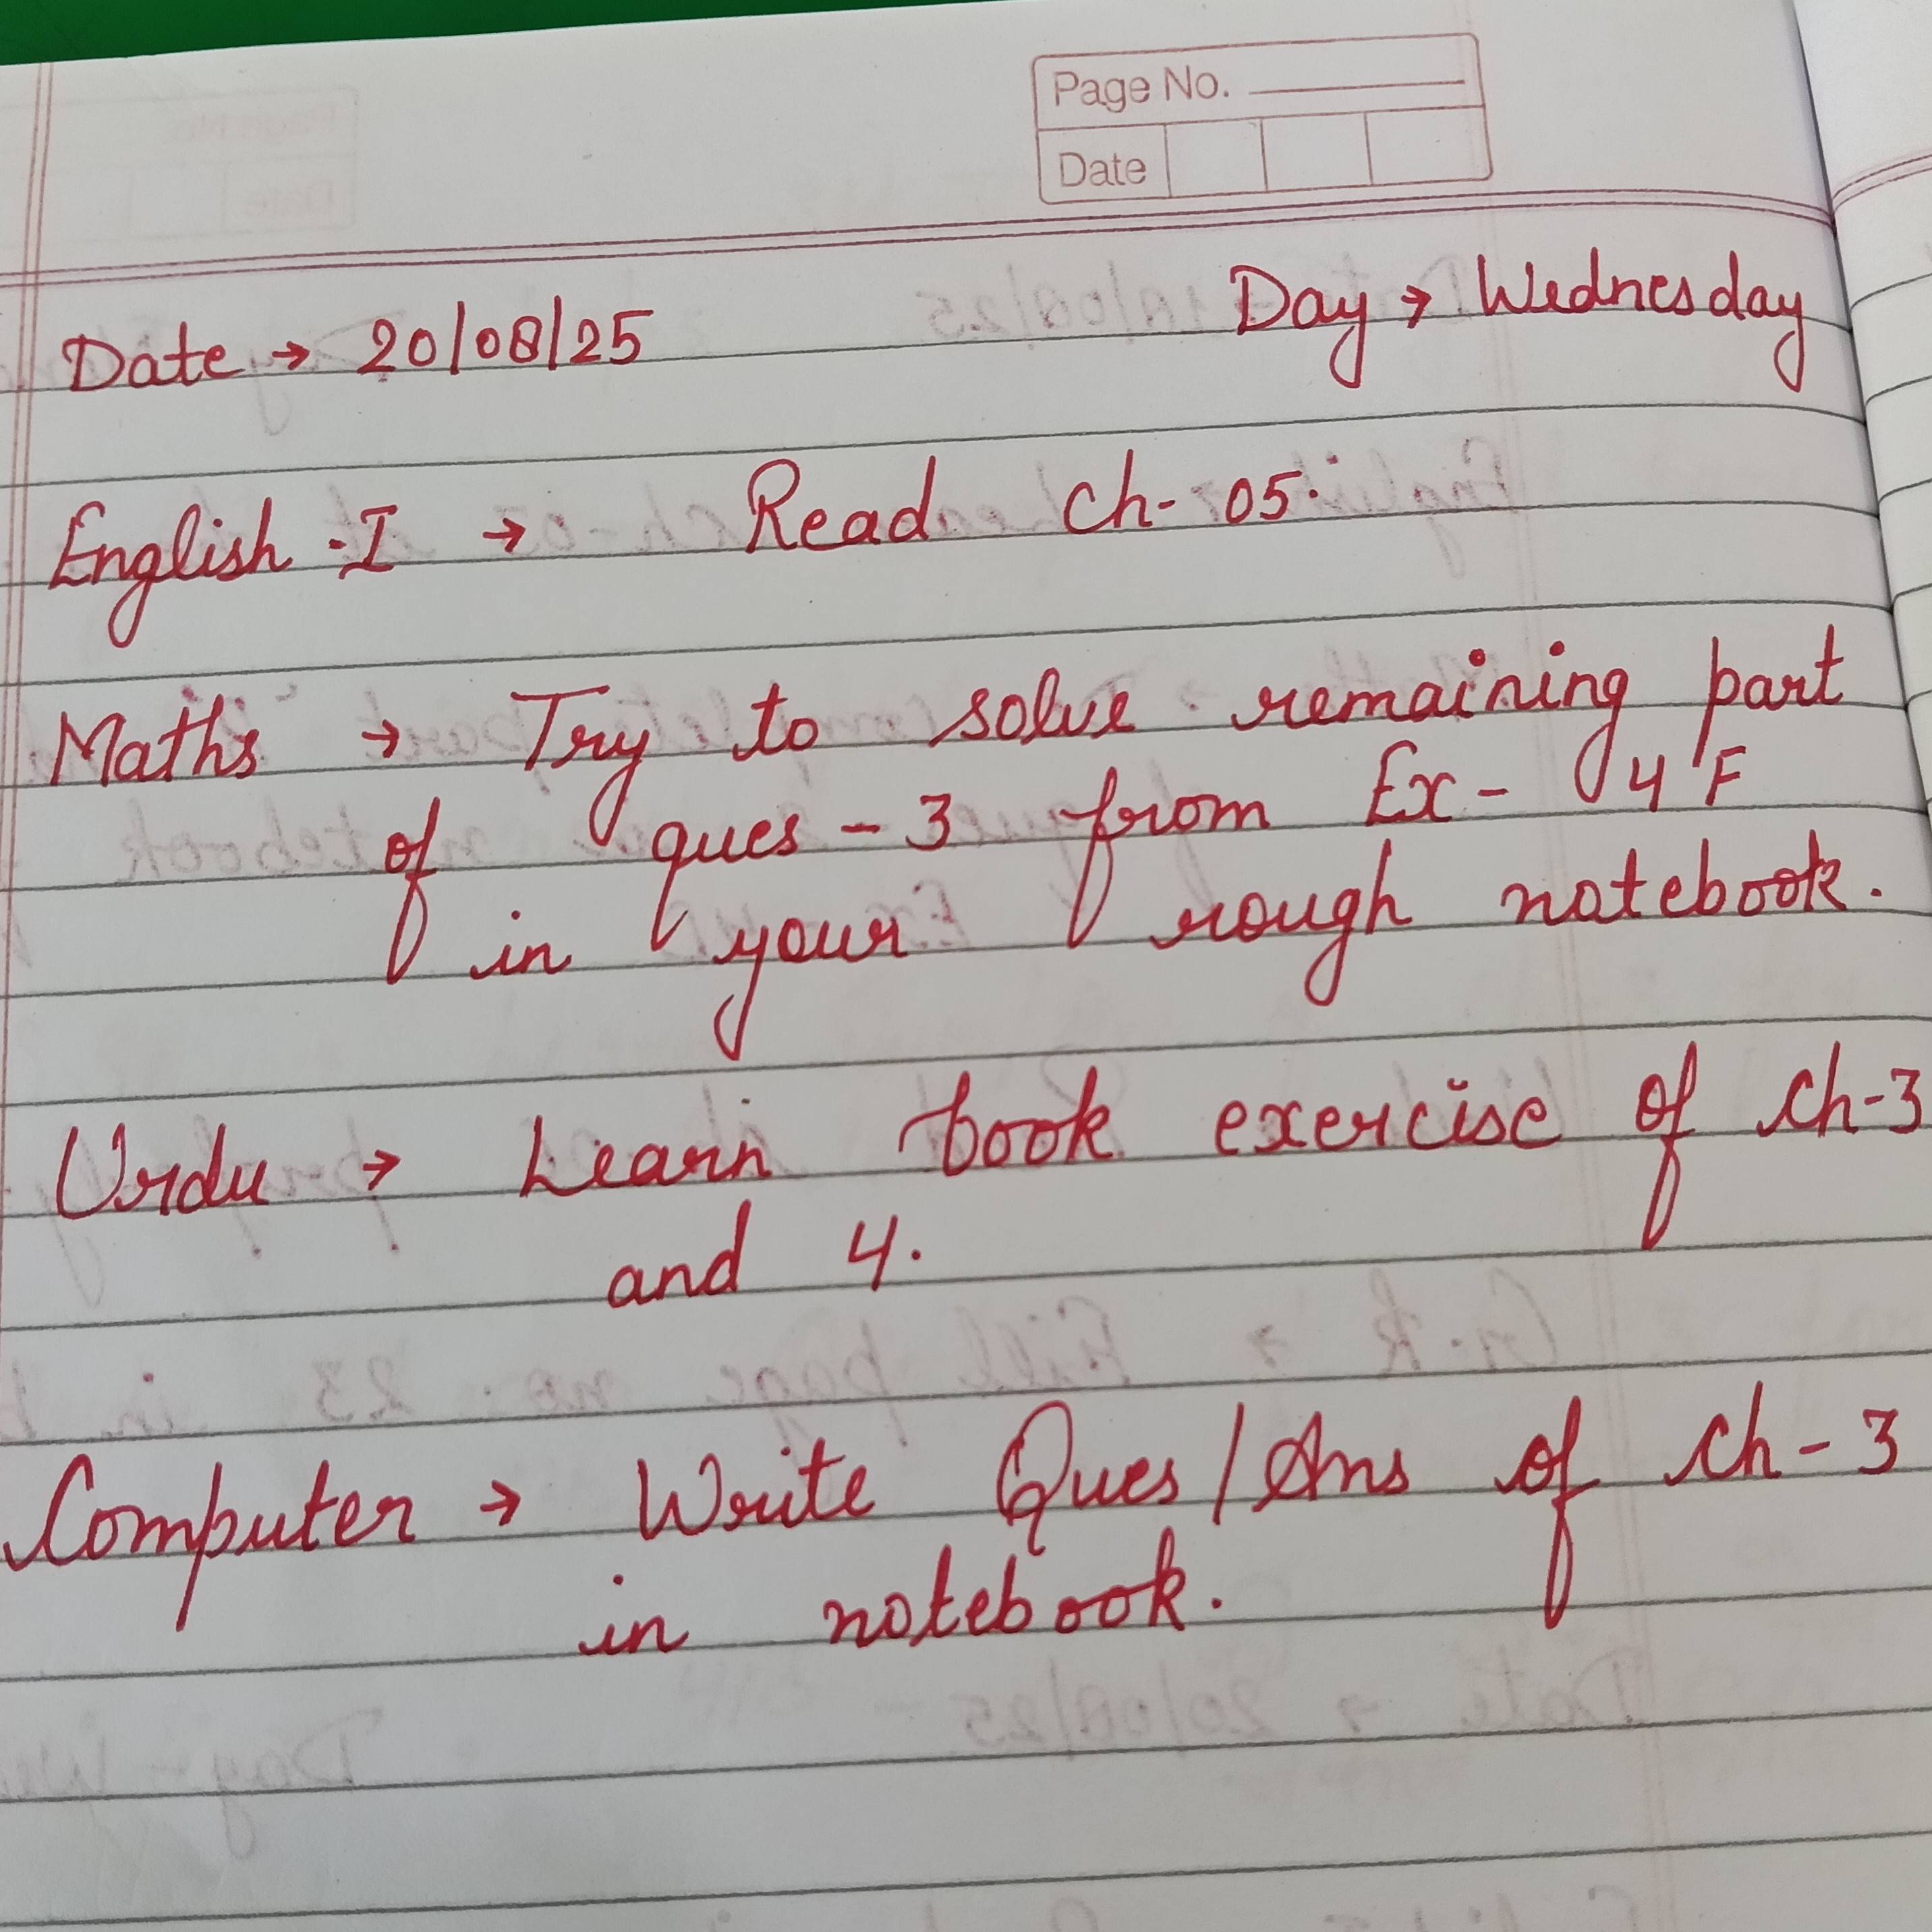 Page No.
Date
Date → 20/08/25 Day → Wednesday
English-I → Read Ch-05.
Maths → Try to solve remaining part
of ques-3 from Ex- 4F
in your rough notebook.
Urdu → Learn book exercise of Ch-3
and 4.
Computer → Write Ques/Ans of Ch-3
in notebook.